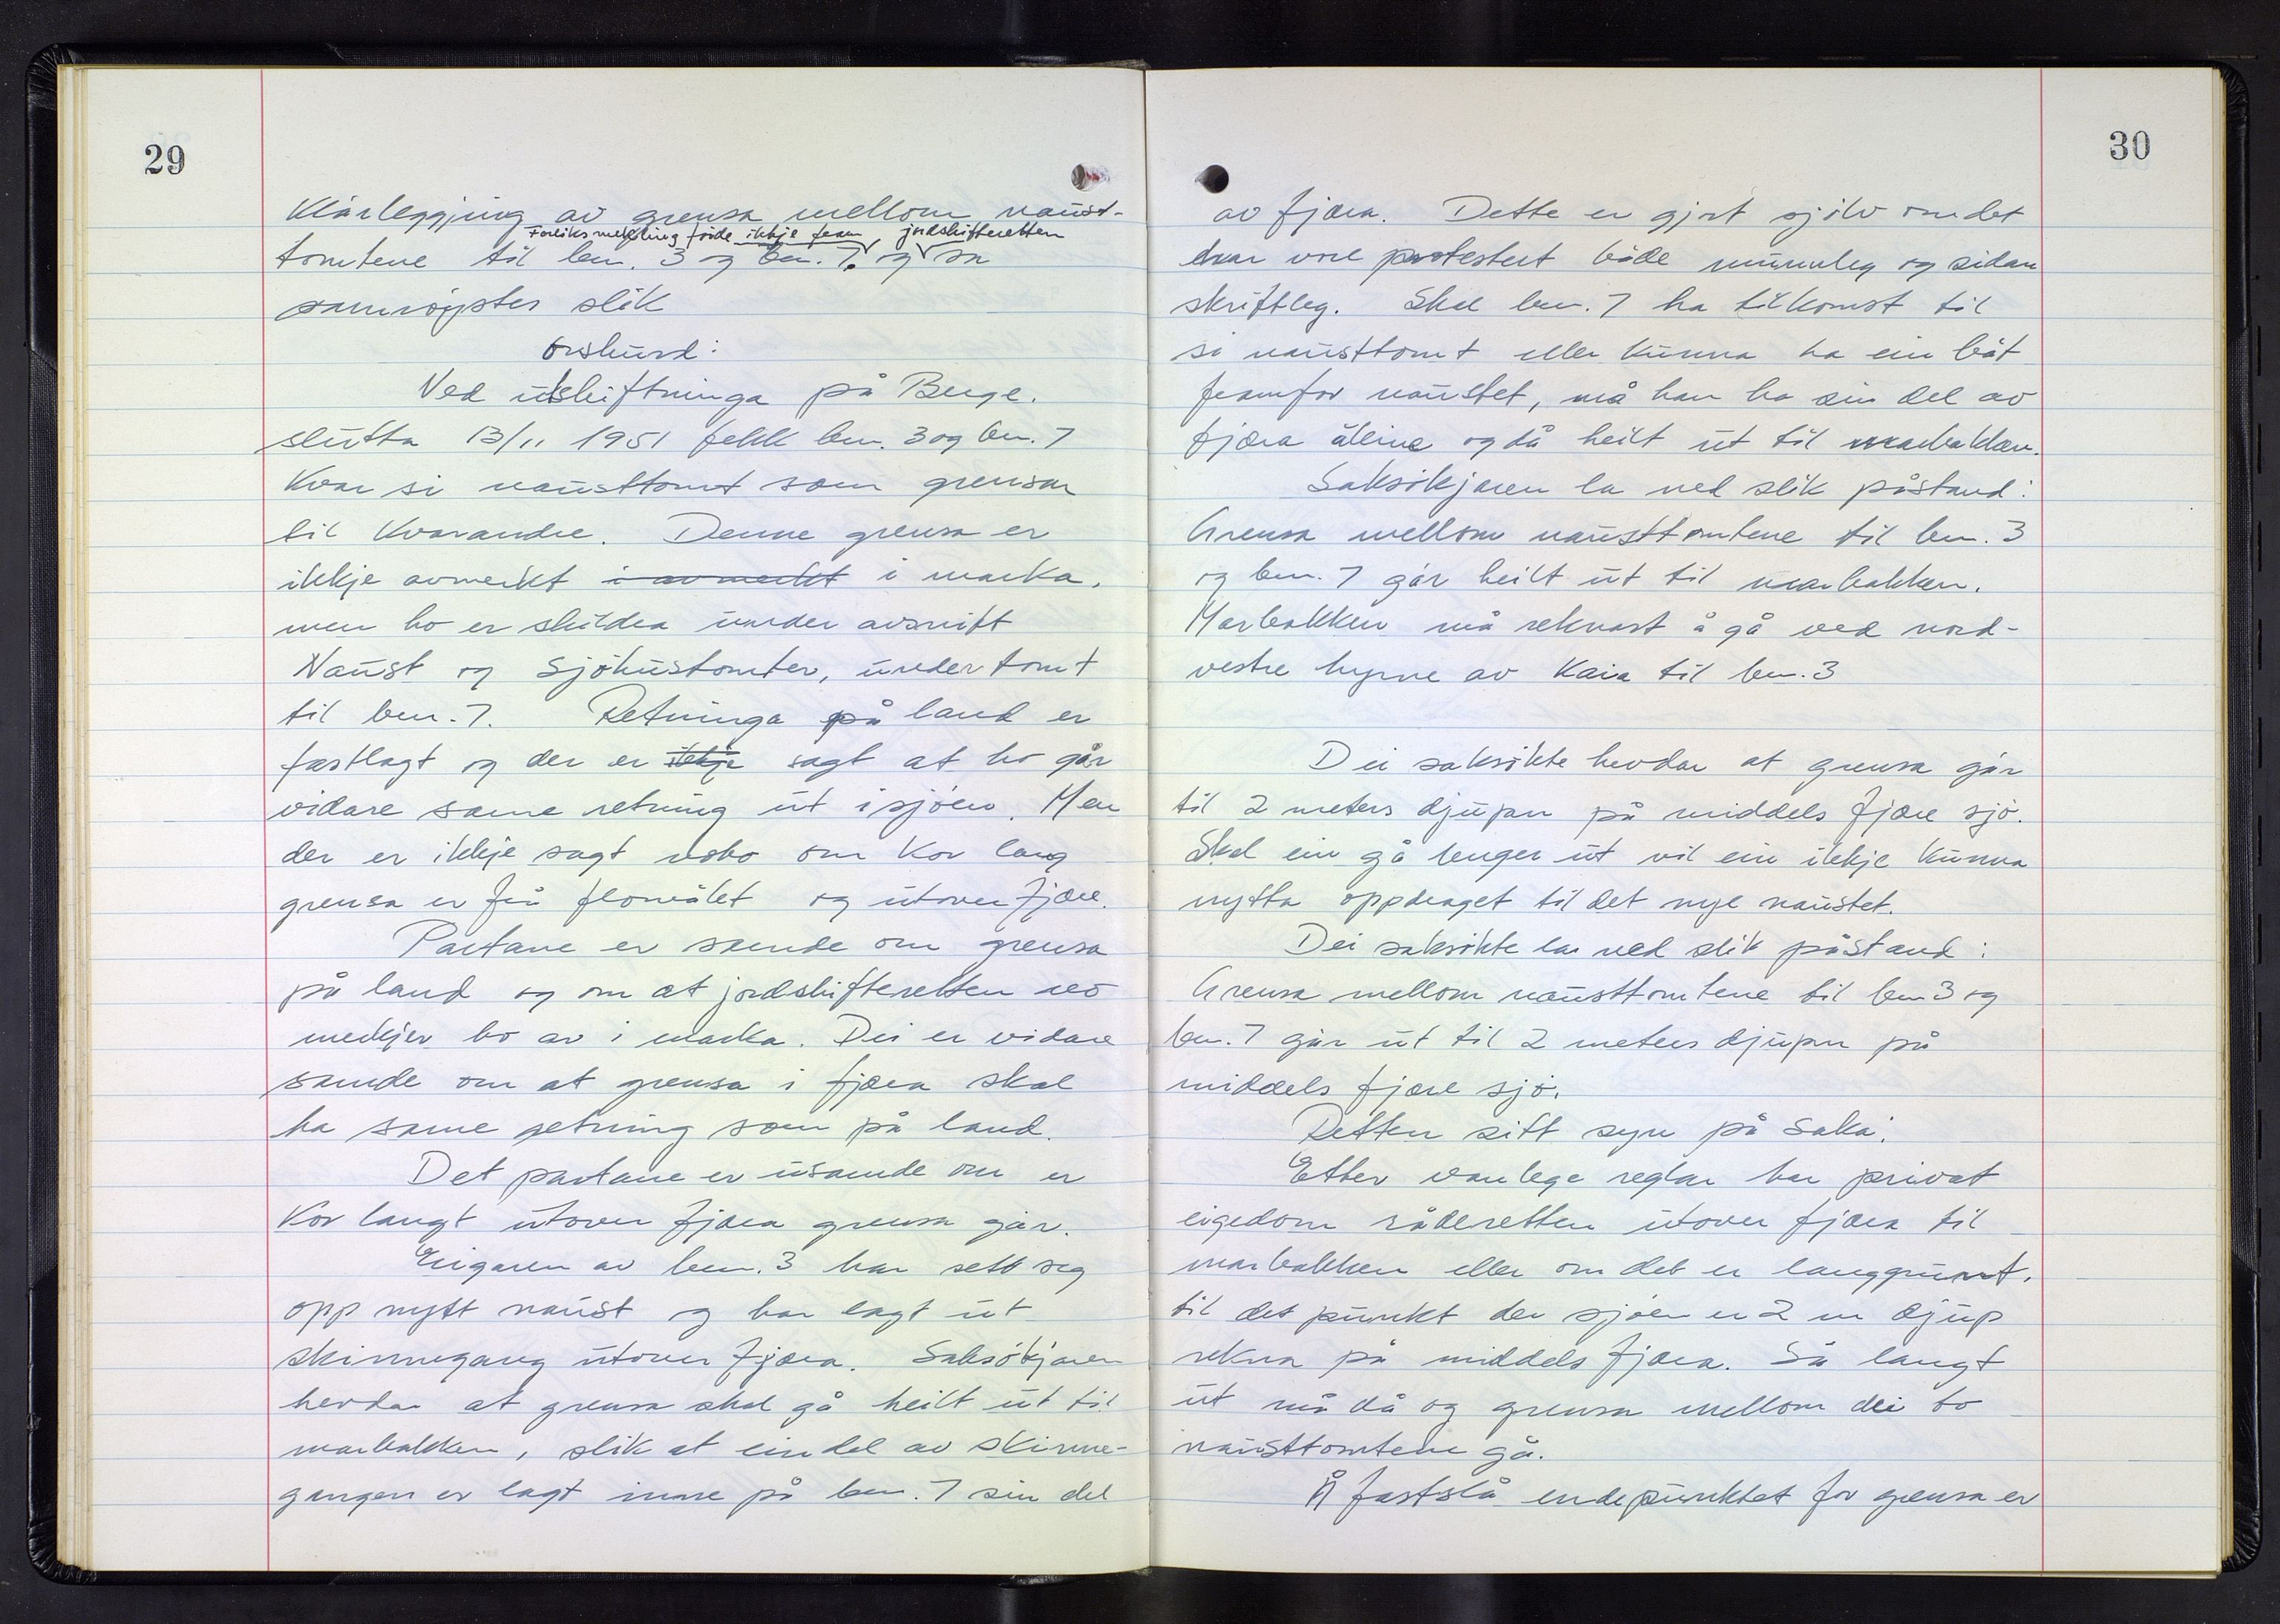 29
Klårleggjing av grensa mellom naust-
Forliksmekling førde ikkje fram jordskifteretten
tomtene til bnr. 3 og bnr. 7. og sa
samrøystes slik
orskurd:
Ved utskiftninga på Berge.
slutta 13/11 1951 fekk bnr. 3 og bnr. 7
kvar si nausttomt som grensar
til kvarandre. Denne grensa er
ikkje avmerkt i avmerkt i marka,
men ho er skildra under avsnitt
Naust og sjøhustomter, under tomt
til bnr. 7. Retninga på land er
fastlagt og der er ikkje sagt at ho går
vidare same retning ut i sjøen. Men
der er ikkje sagt noko om kor lang
grensa er frå flomålet og utover fjøre.
Partane er samde om grensa
på land og om at jordskifteretten no
merkjer ho av i marka. Dei er vidare
samde om at grensa i fjøra skal
ha same retning som på land.
Det partane er usamde om er
kor langt utover fjøra grensa går.
Eigaren av bnr. 3 har sett seg
opp nytt naust og har lagt ut
skinnegang utover fjøra. Saksøkjaren
hevdar at grensa skal gå heilt ut til
marbakken, slik at ein del av skinne-
gangen er lagt inne på bnr. 7 sin del
30
av fjøra. Dette er gjort sjølv om det
har vore protestert både munnleg og sidan
skriftleg. Skal bnr. 7 ha tilkomst til
si nausttomt eller kunna ha ein båt
framfor naustet, må han ha sin del av
fjøra åleine og då heilt ut til marbakken.
Saksøkjaren la ned slik påstand:
Grensa mellom nausttomtene til bnr. 3
og bnr. 7 går heilt ut til marbakken.
Marbakken må reknast å gå ved nord-
vestre hyrne av kaia til bnr. 3
Dei saksøkte hevdar at grensa går
til 2 meters djupn på middels fjøre sjø.
Skal ein gå lenger ut vil ein ikkje kunna
nytta oppdraget til det nye naustet.
Dei saksøkte la ned slik påstand:
Grensa mellom nausttomtene til bnr 3 og
bnr. 7 går ut til 2 meters djupn på
middels fjøre sjø.
Retten sitt syn på saka:
Etter vanlege reglar har privat
eigedom råderetten utover fjøra til
marbakken eller om det er langgrunt,
til det punkt der sjøen er 2 m djup
rekna på middels fjøra. Så langt
ut må då og grensa mellom dei to
nausttomtene gå.
Å fastslå endepunktet for grensa er